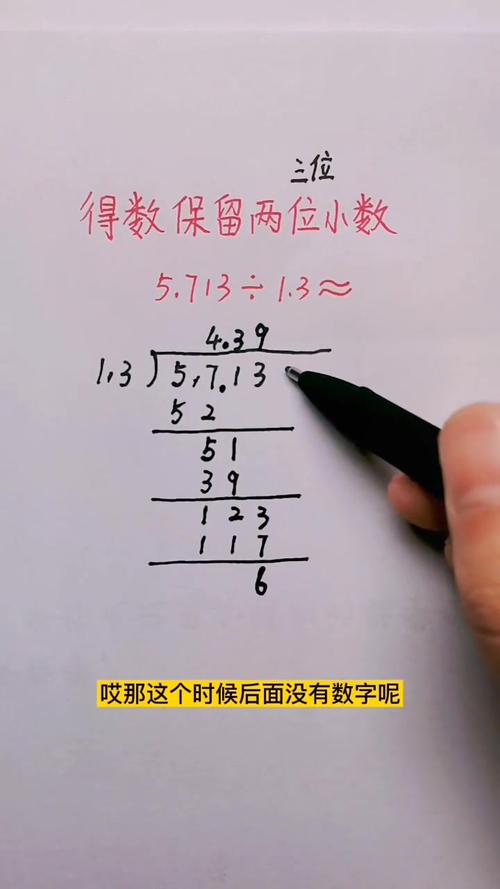 三位
得数保留两位小数
5.713÷1.3≈
4.39
1,3)5,7.13
52
51
39
123
117
6
哎那这个时候后面没有数字呢